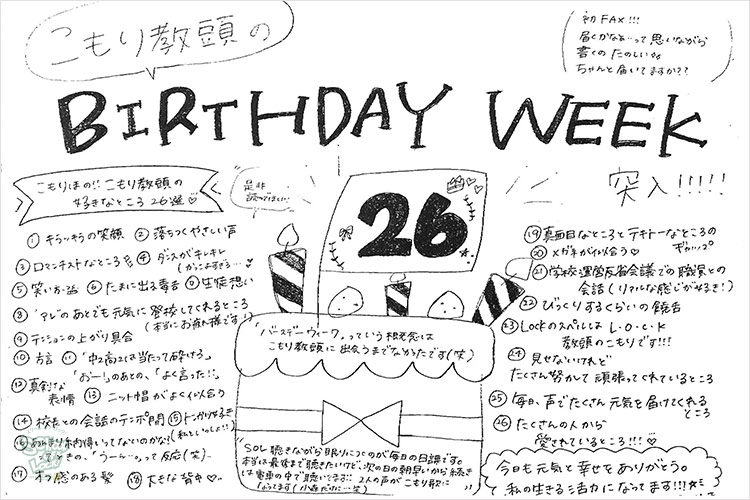 こもり教頭の
初FAX!!!
届くかなぁ…って思いながら
書くの たのしい
ちゃんと届いてますか??
BIRTHDAY WEEK
突入!!!!!
こもりほの!! こもり教頭の
好きなところ 26選♡
是非
読んでほしい
26
① キラッキラの笑顔 ② 落ちつくやさしい声
③ ロマンチストなところ ④ ダンスがキレキレ
(かっこよすぎる…)
⑤ 笑い声 ⑥ たまに出る毒舌 ⑦ 生徒想い
⑧ "アレ"のあとでも元気に登校してくれるところ
(本当にお疲れ様です!)
⑨ テンションの上がり具合
⑩ 方言 ⑪ 「中2高2は当たって砕ける」
⑫ 真剣な表情
「おー!」のあとの、「よく言った!!」
⑬ ニット帽がよく似合う
⑭ 校長との会話のテンポ間 ⑮ トンガリ好き
(私といっしょ!!)
⑯ あんまり納得いってないのかな?
ってときの、「うーん…」って反応(笑)
⑰ 感のある髪 ⑱ 大きな背中♡
「バースデーウィーク」っていう概念は
こもり教頭に出会うまでなかったです(笑)
SOL聴きながら眠りにつくのが毎日の日課です。
本当は最後まで聴きたいけど、次の日の朝早いから続き
は電車の中で聴いてます! 2人の声がこもり歌に
なってます(小森だけに…笑)
⑲ 真面目なところとテキトーなところの
ギャップ
⑳ メガネが似合う♡
㉑ 学校運営反省会議での職員との
会話(リアルな感じが好き!)
㉒ びっくりするくらいの饒舌
㉓ Lockのスペルは L・O・C・K
教頭のこもりです!!!
㉔ 見せないけれど
たくさん努力して頑張ってくれているところ
㉕ 毎日、声でたくさん元気を届けてくれる
ところ
㉖ たくさんの人から
愛されているところ!!!♡
今日も元気と幸せをありがとう。
私の生きる活力になってます!!!